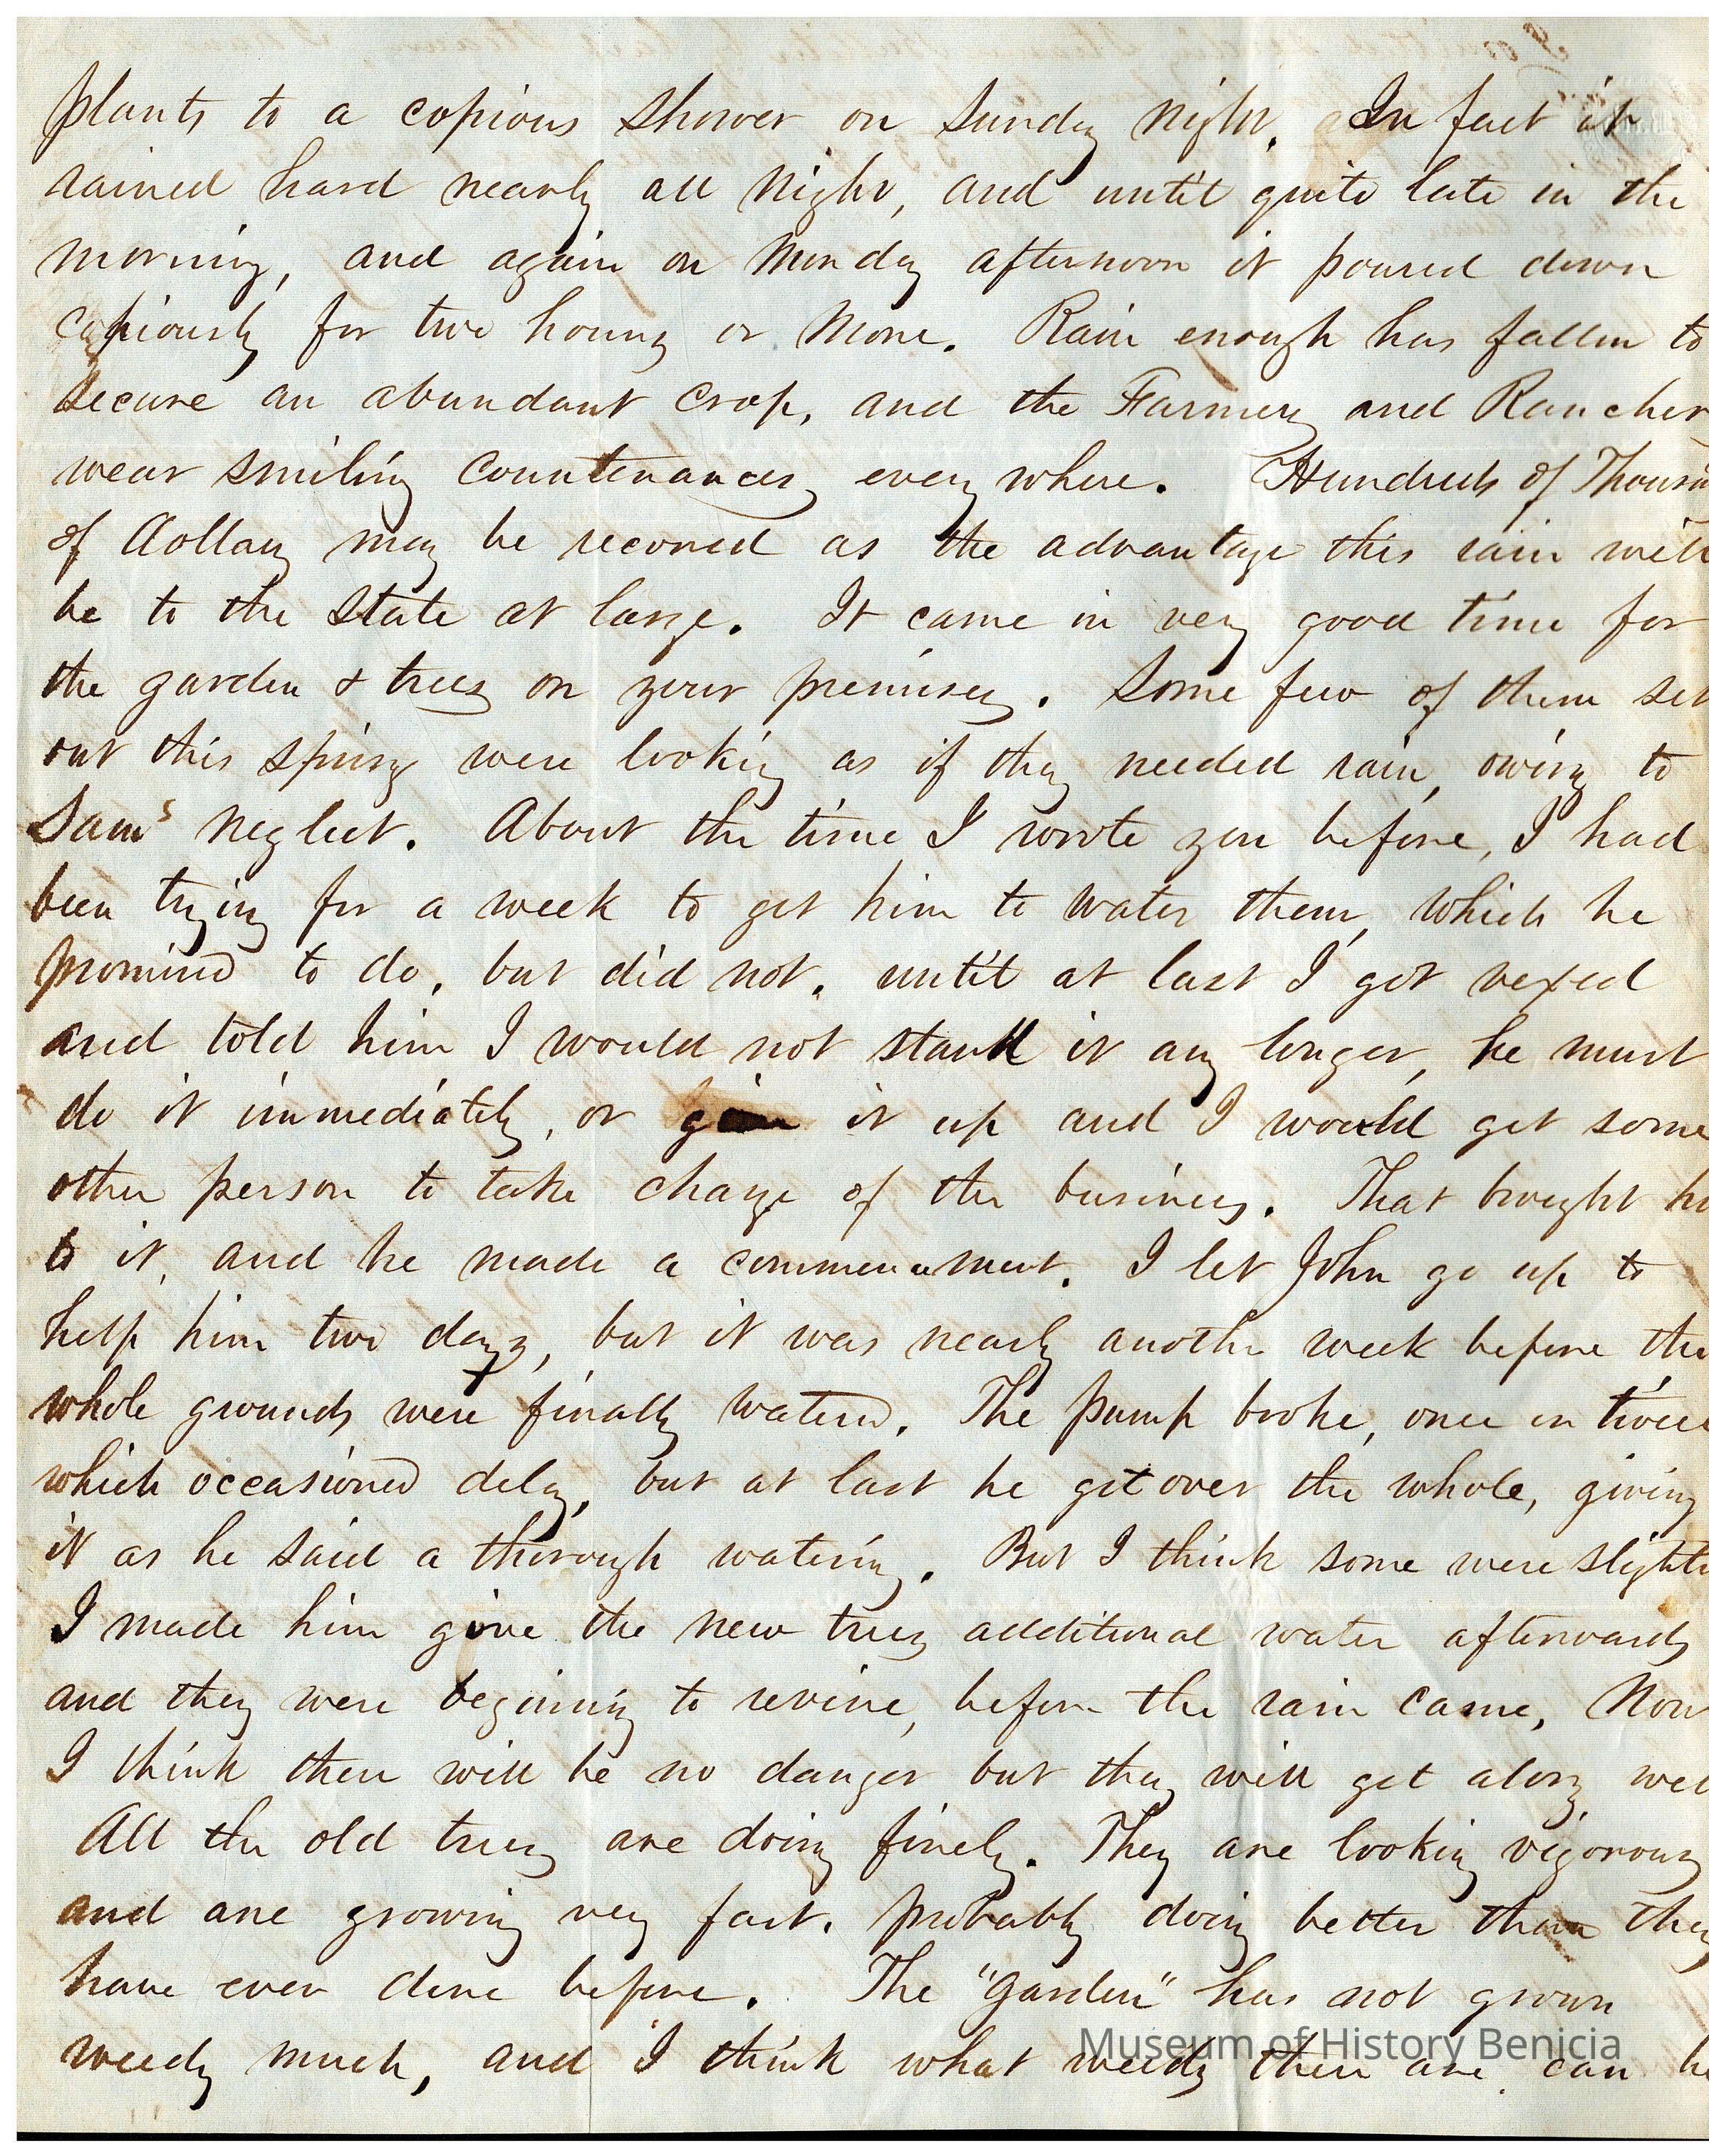 plants to a copious shower on Sunday night. In fact it
rained hard nearly all night, and until quite late in the
morning, and again on Monday afternoon it poured down
copiously for two hours or more. Rain enough has fallen to
secure an abundant crop, and the Farmers and Rancher
wear smiling countenances every where. Hundreds of Thousa
of dollars may be reconed as the advantage this rain will
be to the State at large. It came in very good time for
the garden & trees on your premises. Some few of them set
out this spring were looking as if they needed rain, owing to
Sam's neglect. About the time I wrote you before, I had
been trying for a week to get him to water them, which he
promised to do, but did not. until at last I got vexed
and told him I would not stand it any longer, he must
do it immediately, or give it up and I would get some
other person to take charge of the business. That brought hi
to it, and he made a commencement. I let John go up to
help him two days, but it was nearly another week before the
whole grounds were finally watered. The pump broke, once or twice
which occasioned delay, but at last he got over the whole, giving
it as he said a thorough watering. But I think some were slighte
I made him give the new trees additional water afterwards
and they were begining to revive, before the rain came, Now
I think there will be no danger but they will get along well
All the old trees are doing finely. They are looking vigorous
and are growing very fast. probably doing better than they
have ever done before. The "garden" has not grown
weedy much, and I think what weeds there are can be
Museum of History Benicia